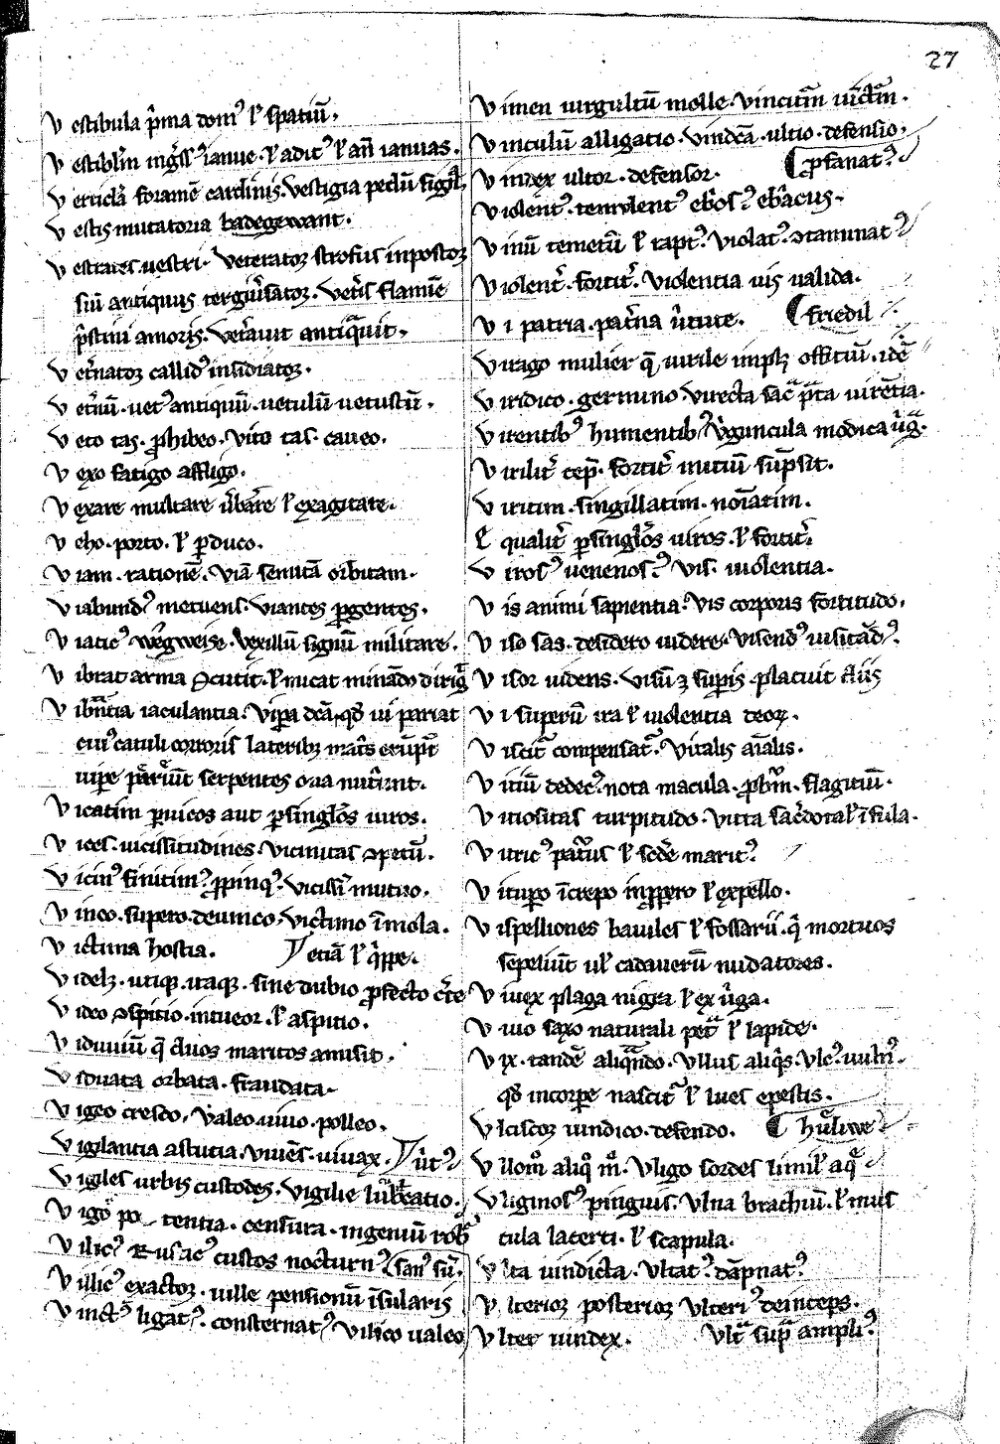 27
Vestibula p̄ma domꝰ ł spatiū.
Vestiblm̄ ingᷤsꝰ ianue. ł aditꝰ ł añ ianuas.
Verticła foramē cardinis. Vestigia pedū sigił.
Vestis mutatoria badegewant.
Vestrates. uestri. Veteratoꝛ strofus inpostoꝛ
siū antiquus tergiūsatoꝛ. Vetīs flamē
p̄stini amoris. Vetauit antiqͣuit.
Vetnatoꝛ callidꝰ insidiatoꝛ.
Vetnū. uetꝰ antiquū. uetulū uetustū.
Veto tas. ꝓhibeo. Vito tas. caueo.
Vexo fatigo affligo.
Vexare multare ūbare ł exagitare.
Veho. porto. ł ꝑduco.
Viam. rationē. Viā semitā orbitam.
Viabundꝰ metuens. Viantes ꝑgentes.
Viaticꝰ wegweise. Vexillū signū militare.
Vibrat arma ꝯcutit. ł micat minādo dirigͥ
Vibrātia iaculantia. Viꝑa dcā, qđ ui pariat
eiuꝰ catuli corrosis lateribꝫ matis erūpūt
uipe pariūt serpentes oua nutriūt.
Vicatim ꝑ uicos aut ꝑ singlos uiros.
Vices. uicissitudines. Vicinitas ꝯpetū.
Vicinꝰ finitimꝰ ꝓpinqꝰ. Vicissī mutuo.
Vinco. supero. deuinco, Victimo īmola.
Victima hostia. etiā ł qͥppe.
Videlꝫ. utiqꝫ. itaqꝫ. sine dubio ꝓfecto cͭte
Video ꝯspicio. intueor. ł aspitio.
Viduuiū q̄ duos maritos amisit.
Viduata orbata. fraudata.
Vigeo cresco, valeo. uiuo. polleo.
Vigilantia astutia. Viuēs. uiuax. ūtꝰ
Vigiles urbis custodes. Vigilie lūbratio.
Vigoꝛ potentia. censura. ingeniū robꝰ
Vilicꝰ Rusticꝰ custos nocturnꝰ sanꝰ sū.
Villicꝰ exactoꝛ. uille pensionū īsularis
Vinctꝰ ligatꝰ. consternatꝰ Vilico ualeo
Vimen uirgultū molle. Vincitm̄ uictm̄.
Vinculū alligatio. Vindcā. ultio. defensio,
Vindex ultor. defensor. ꝓfanatꝰ
Violentꝰ. temulentꝰ ebosꝰ ebacus.
Vinū temetū ł raptꝰ. Violatꝰ ꝯtaminatꝰ
Violent͛. fortit͛. Violentia uis ualida.
Vi patria. pat͛na ūtute. friedil
Virago mulier q̄ uirile implꝫ offitiū. idē
Viridico. germino. Virecta sac̄ p̄ta uirētia.
Virentibꝰ humentibꝰ Vrguncula modica uͥgͣ.
Virilit͛ cep̄. fortit͛ initiū sūpsit.
Viritim. singillatim. noīatim.
Equalit͛ ꝑ singlos uiros. ł fortit͛.
Virosꝰ uenenosꝰ. Vis. uiolentia.
Vis animi sapientia. Vis corporis fortitudo.
Viso sas. desidero uidere. Visendꝰ uisitādꝰ.
Visor uidens. Visū ꝫ suꝑis. placuit diis
Vi superū ira ł uiolentia deoꝝ.
Viscit͛ compensat͛. Vitalis aīalis.
Vitiū dedecꝰ. nota macula. ꝓbrm̄. flagitiū.
Vitiositas turpitudo. Vitta sacdotał īsula.
Vitricꝰ patuus ł scde maritꝰ
Vitupo īcrepo inꝓpero ł expello.
Vispelliones baiules ł fossarii. qͥ mortuos
sepeliūt uł cadauerū nudatores.
Viuex plaga nigra ł ex ūga.
Viuo saxo naturali petͣ ł lapide.
Vix. tandē aliqn̄do. Vllus aliqͥs. Vlcꝰ uulnꝰ.
qđ incorpe nascit͛ ł lues epestis.
Vlciscoꝛ uindico. defendo. hūliwe
Vllomͦ aliqͦ mͦ. Vligo sordes limił aqͣ
Vliginosꝰ pinguis. Vlna brachiū. ł mus
cula lacerti. ł scapula.
Vlta uindicta. Vltatꝰ. dāpnatꝰ
Vlterioꝛ posterioꝛ Vlteriꝰ deinceps.
Vlter uindex. Vltͣ supͣ ampliꝰ